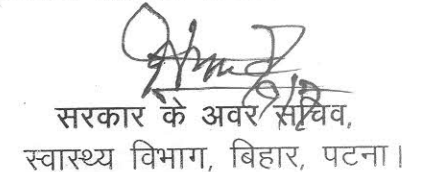 सरकार के अवर सचिव,
स्वास्थ्य विभाग, बिहार, पटना।